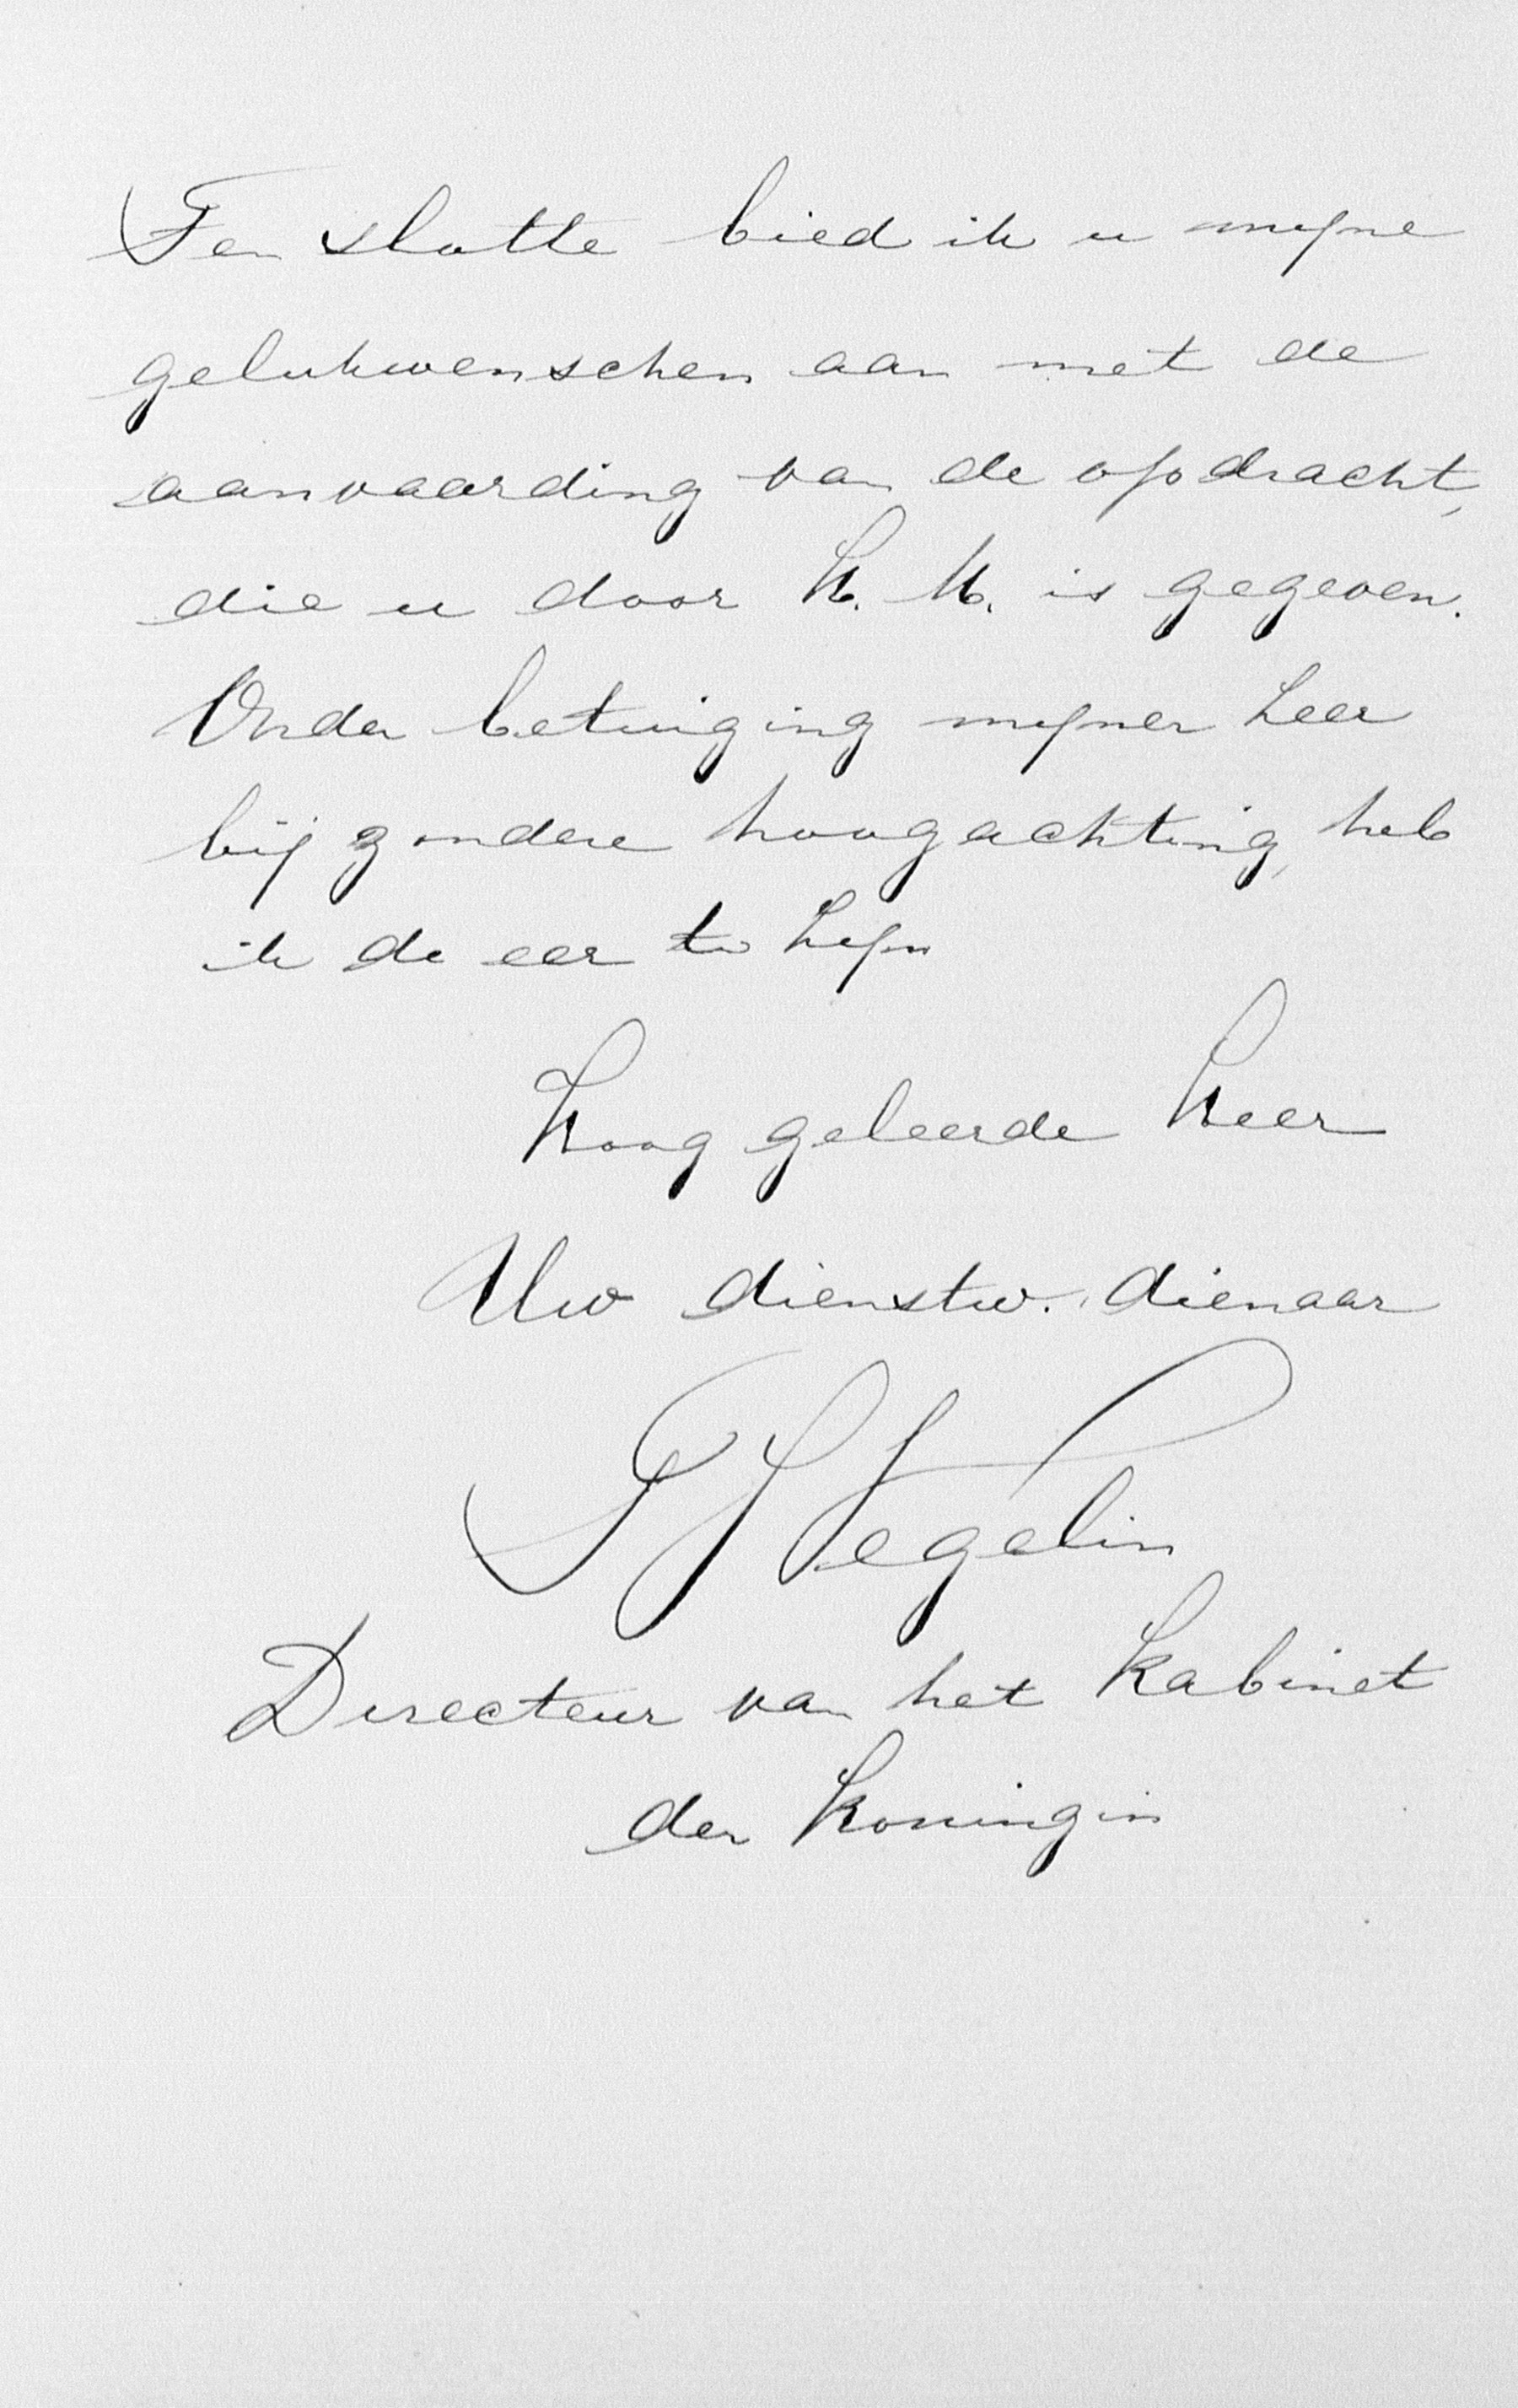 Ten slotte bied ik u mijne
gelukwenschen aan met de
aanvaarding van de opdracht,
die u door H. M. is gegeven.
Onder betuiging mijner zeer
bijzondere hoogachting, heb
ik de eer te zijn
Hoog geleerde Heer
Uw dienstw. dienaar
Segelin
Directeur van het Kabinet
der Koningin